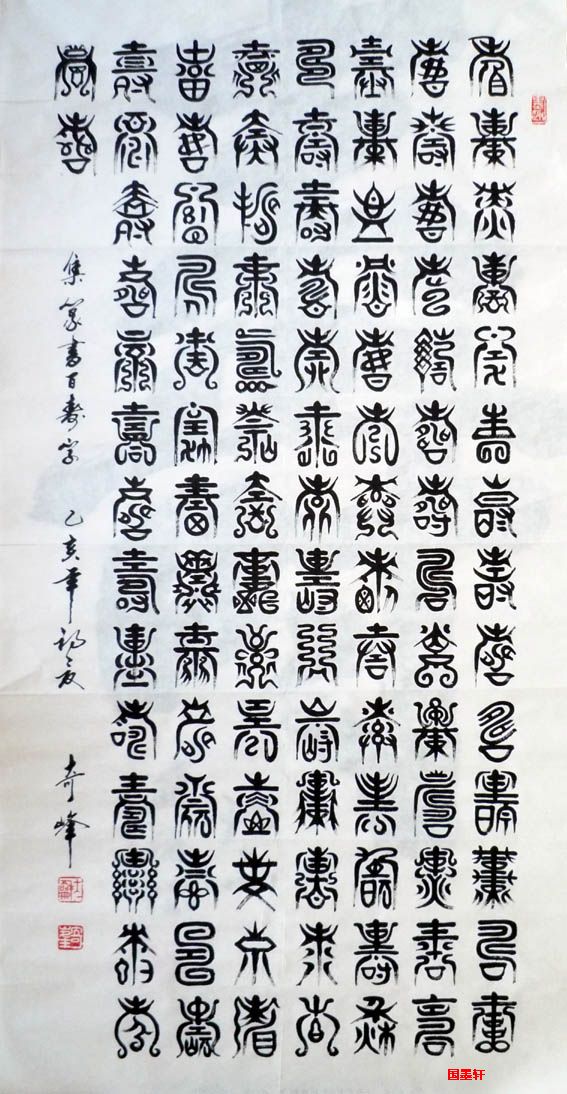 壽壽壽壽壽壽壽壽壽壽壽壽壽壽
壽壽壽壽壽壽壽壽壽壽壽壽壽壽
壽壽壽壽壽壽壽壽壽壽壽壽壽壽
壽壽壽壽壽壽壽壽壽壽壽壽壽壽
壽壽壽壽壽壽壽壽壽壽壽壽壽壽
壽壽壽壽壽壽壽壽壽壽壽壽壽壽
壽壽壽壽壽壽壽壽壽壽壽壽壽壽
壽壽
集篆書百寿字 乙亥年初夏 奇峰
国墨轩